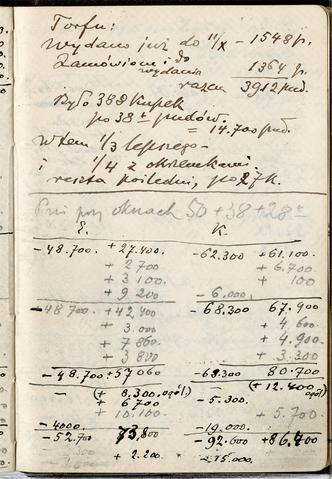 Torfu:
Wydano już do 11/X - 1548 p.
Zamówiono i do
wydania 1364 p.
razem 3912 pud.
Było 388 kupek
po 38 ± pudów.
= 14.700 pud.
W tem 1/3 lepszego -
i 1/4 z okrenkami
reszta pośledni, po 27 k.
przy oknach 50 + 38 + 28 ±
E. K.
- 48.700. + 27.400. - 62.300 + 61.100.
+ 2 700 + 6.700
+ 3 100 + 100
+ 9 200 - 6.000.
- 48 700 + 42 400 - 68.300 67.900
+ 3.000 + 4 600
+ 7 860 + 4.900.
+ 3 800 + 3.300
- 48.700 + 57 060 - 68.300 80.700
- (+ 8.300. ogól.) - (+ 12.400 ogól)
+ 6 700 - 5.300.
+ 10.100 - + 5.700
- 4000. - 19.000.
- 52.700 73.800 - 92.600 + 86.400
+ 2.200. - 15.000.